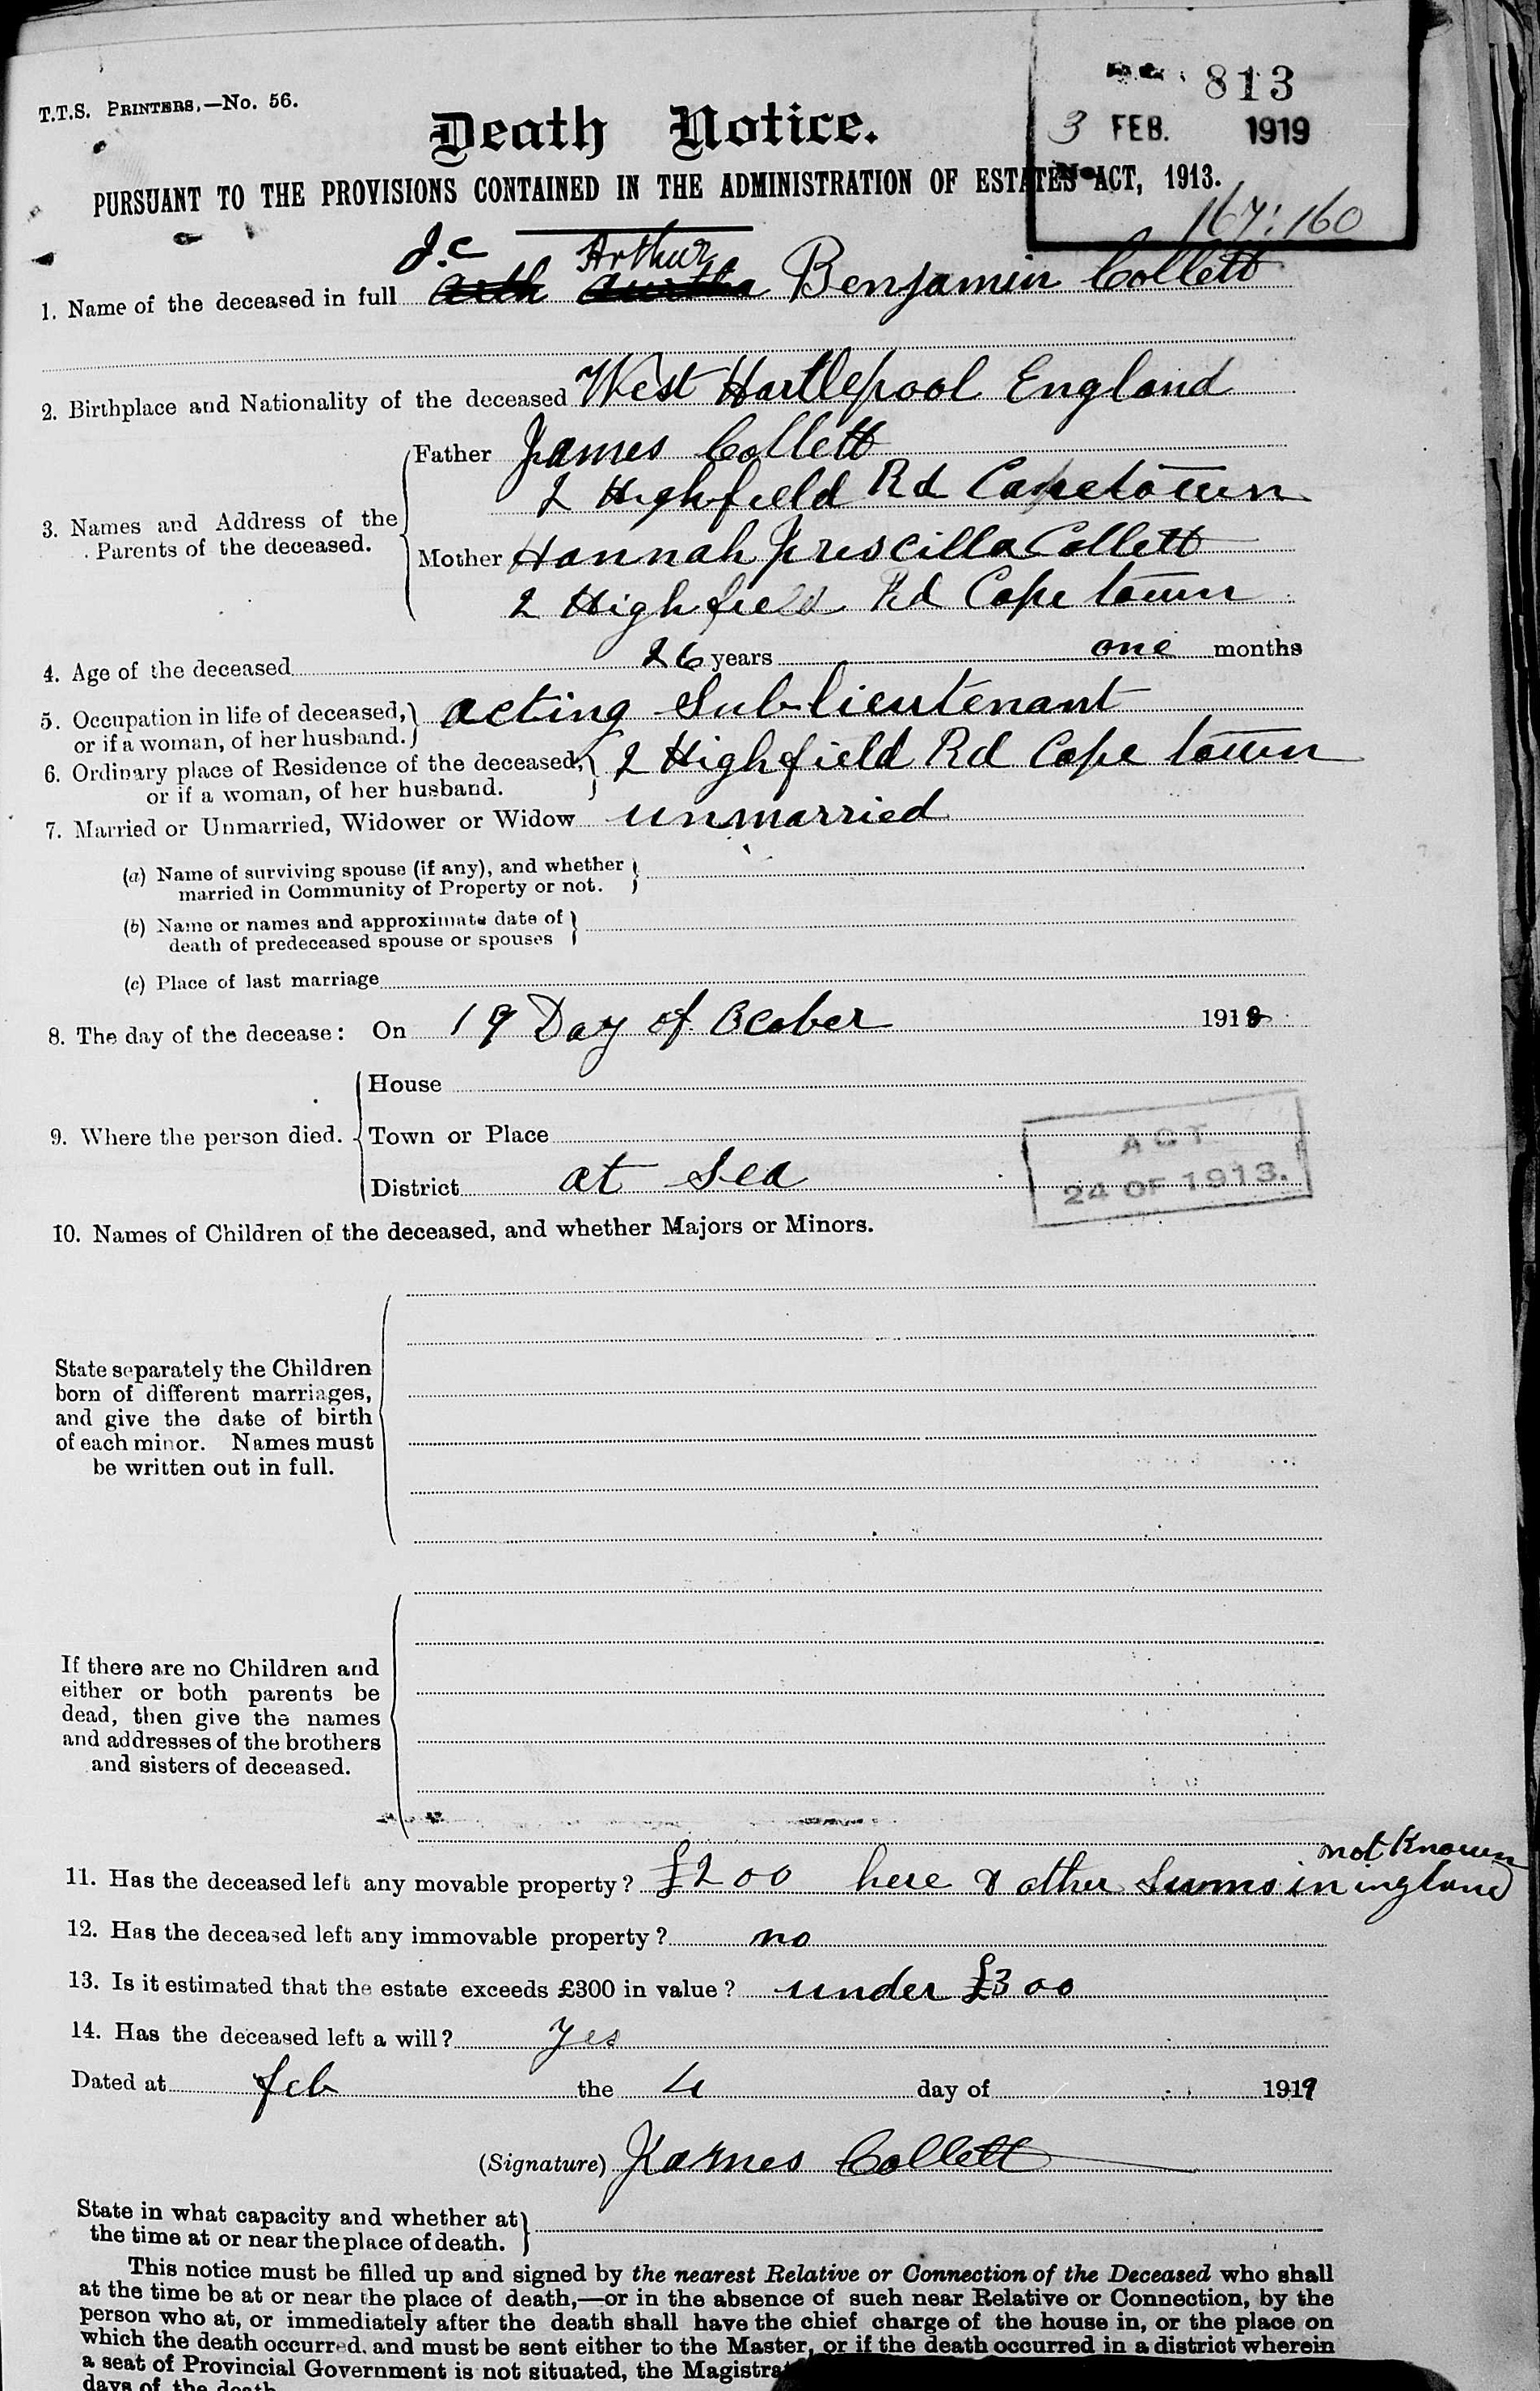 T.T.S. PRINTERS.—No. 56.
813
3 FEB. 1919
167:160
Death Notice.
PURSUANT TO THE PROVISIONS CONTAINED IN THE ADMINISTRATION OF ESTATES ACT, 1913.
J.C Arthur
1. Name of the deceased in full Benjamin Collett
2. Birthplace and Nationality of the deceased West Hartlepool England
Father James Collett
2 Highfield Rd Capetown
3. Names and Address of the
Parents of the deceased.
Mother Hannah Priscilla Collett
2 Highfield Rd Cape town
4. Age of the deceased 26 years one months
5. Occupation in life of deceased, acting Sub-lieutenant
or if a woman, of her husband.
6. Ordinary place of Residence of the deceased, 2 Highfield Rd Cape town
or if a woman, of her husband.
7. Married or Unmarried, Widower or Widow unmarried
(a) Name of surviving spouse (if any), and whether
married in Community of Property or not.
(b) Name or names and approximate date of
death of predeceased spouse or spouses
(c) Place of last marriage
8. The day of the decease: On 19 Day of Ocober 1918
House
9. Where the person died. Town or Place
District at Sea
ACT
24 OF 1913.
10. Names of Children of the deceased, and whether Majors or Minors.
State separately the Children
born of different marriages,
and give the date of birth
of each minor. Names must
be written out in full.
If there are no Children and
either or both parents be
dead, then give the names
and addresses of the brothers
and sisters of deceased.
not Known
11. Has the deceased left any movable property? £200 here & other Sums in ingland
12. Has the deceased left any immovable property? no
13. Is it estimated that the estate exceeds £300 in value? under £300
14. Has the deceased left a will? yes
Dated at feb the 4 day of 1919
(Signature) James Collett
State in what capacity and whether at
the time at or near the place of death.
This notice must be filled up and signed by the nearest Relative or Connection of the Deceased who shall
at the time be at or near the place of death,—or in the absence of such near Relative or Connection, by the
person who at, or immediately after the death shall have the chief charge of the house in, or the place on
which the death occurred, and must be sent either to the Master, or if the death occurred in a district wherein
a seat of Provincial Government is not situated, the
days of the death